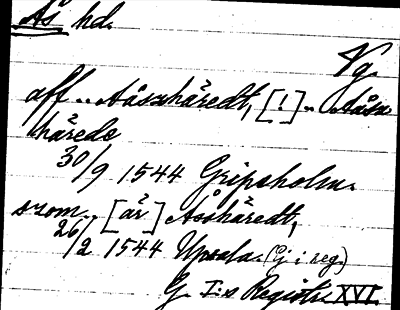 Ås hd.
Vg.
aff .. Aåsahäredt, [!] .. Aåsa
härede
30/9 1544 Gripsholm.
som .. [är] Asshäredt,
26/2 1544 Upsala. (Ej i reg.)
G. I:s Registr. XVI.